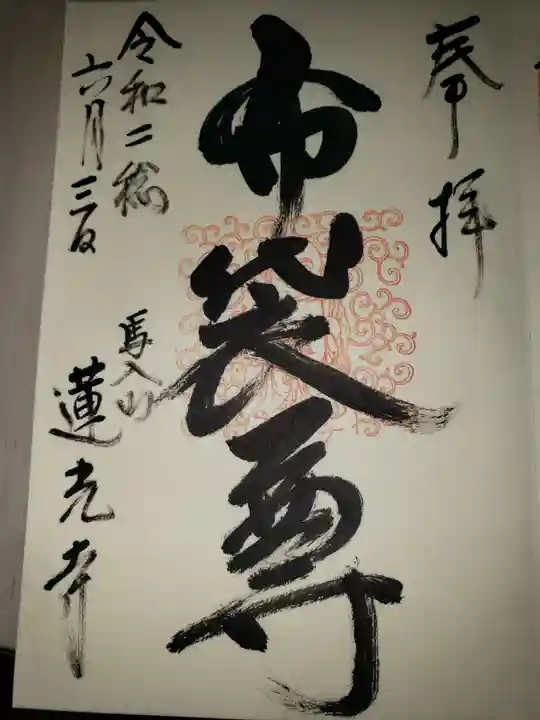 奉拝
布袋尊
馬入山
蓮光寺
令和二稔
六月三日